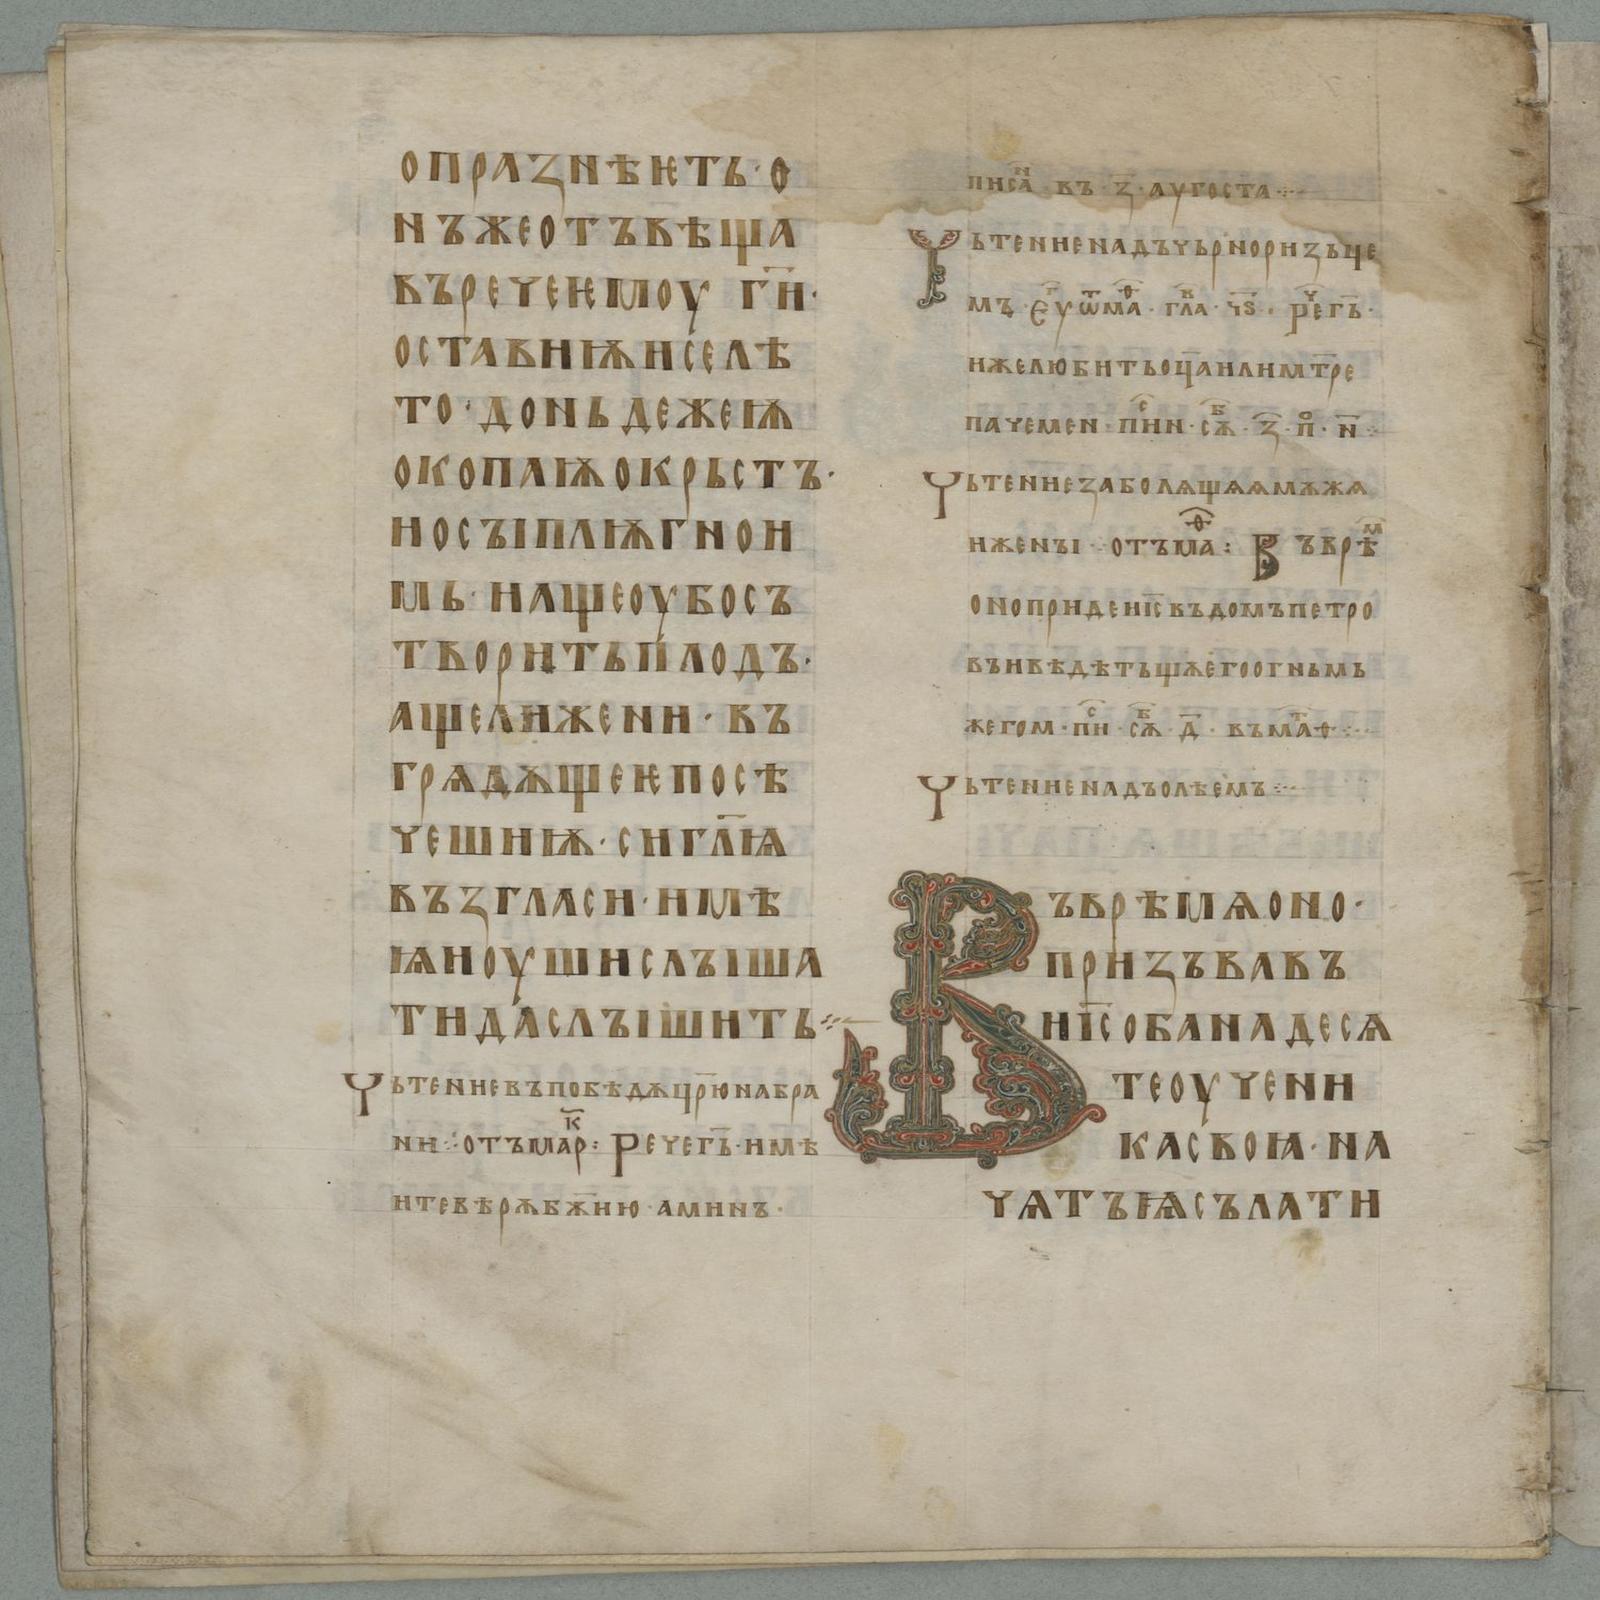 опразнѣѥть· о
нъжеотъвѣща
въречеѥмоу г҃и·
оставиѭиселѣ
то· доньдежеѭ
окопаѭокрьстъ·
носъіплѭгнои
мь· нащеоубосъ
творитьплодъ·
ащелижени· въ
грѧдѫщеѥпосѣ
чешиѭ· сигл҃ѩ
възгласи· имѣ
ꙗиоушислъіша
тидаслъішить
Чьтениевъпобѣдѫцр҃юнабра
ни отъмарк: Речегъ҃· имѣ
итевѣрѫбж҃ию· аминъ·
писан· въ· з҃· аугоста
Чьтениенадъчьрноризьце
мъ· єугѿмаѳ· гла· ч҃ѕ· речегъ҃·
ижелюбитьоц҃аилимт҃ре
пачемен· писн· сѫб· з҃· п· н҃
Чьтениезаболѧщѧѧмѫжѧ
иженъі· отъмаѳ: Въврѣм
оноприде и҃свъдомъпетро
въивѣдѣтьщѫѥгоогньмь
жегом· пис· сѫб· д҃· въмаѳ
Чьтениенадъолѣемъ
Въврѣмѧоно·
призъвавъ
ии҃собанадесѧ
теоучени
касвоꙗ· на
чѧтъѩсълати